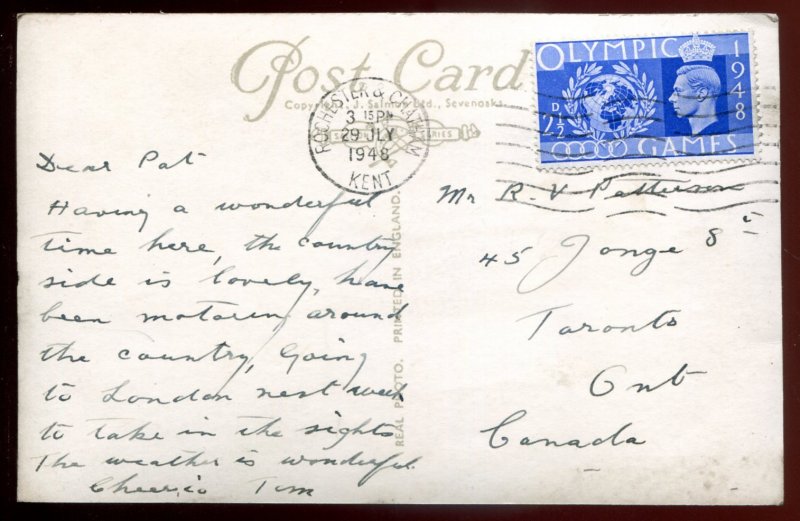 Post Card
Copyright. J. Salmon Ltd., Sevenoaks
SERIES
ROCHESTER & CHATHAM
3 15 PM
29 JLY
1948
KENT
OLYMPIC
1948
2½ D
GAMES
REAL PHOTO. PRINTED IN ENGLAND.
Dear Pat
Having a wonderful
time here, the country
side is lovely, have
been motoring around
the country, Going
to London next week
to take in the sights
The weather is wonderful.
Cheerio Tom
Mr R. V Patterson
45 Yonge St
Toronto
Ont
Canada